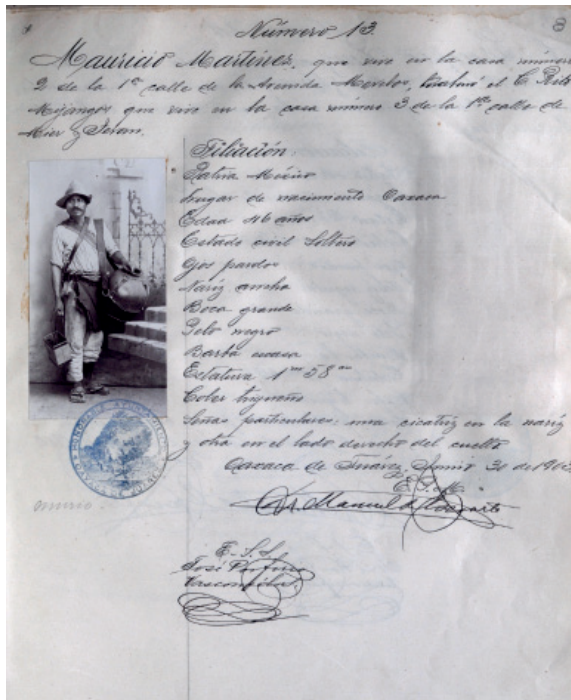 Número 13.
8
Mauricio Martínez, que vive en la casa número
2 de la 1ª calle de la Avenida Morelos, el C.
Mijangos que vive en la casa número 3 de la 1ª calle de
Mier y Terán.
Filiación.
Patria México
Lugar de nacimiento Oaxaca
Edad 46 años
Estado civil Soltero
Ojos pardos
Nariz ancha
Boca grande
Pelo negro
Barba escasa
Estatura 1m 58cm
Color trigueño
Señas particulares: una cicatriz en la nariz
y otra en el lado derecho del cuello
Oaxaca de Juárez, Junio 30 de
Manuel de
murió.
E. S. S.
José
Vasconcelos